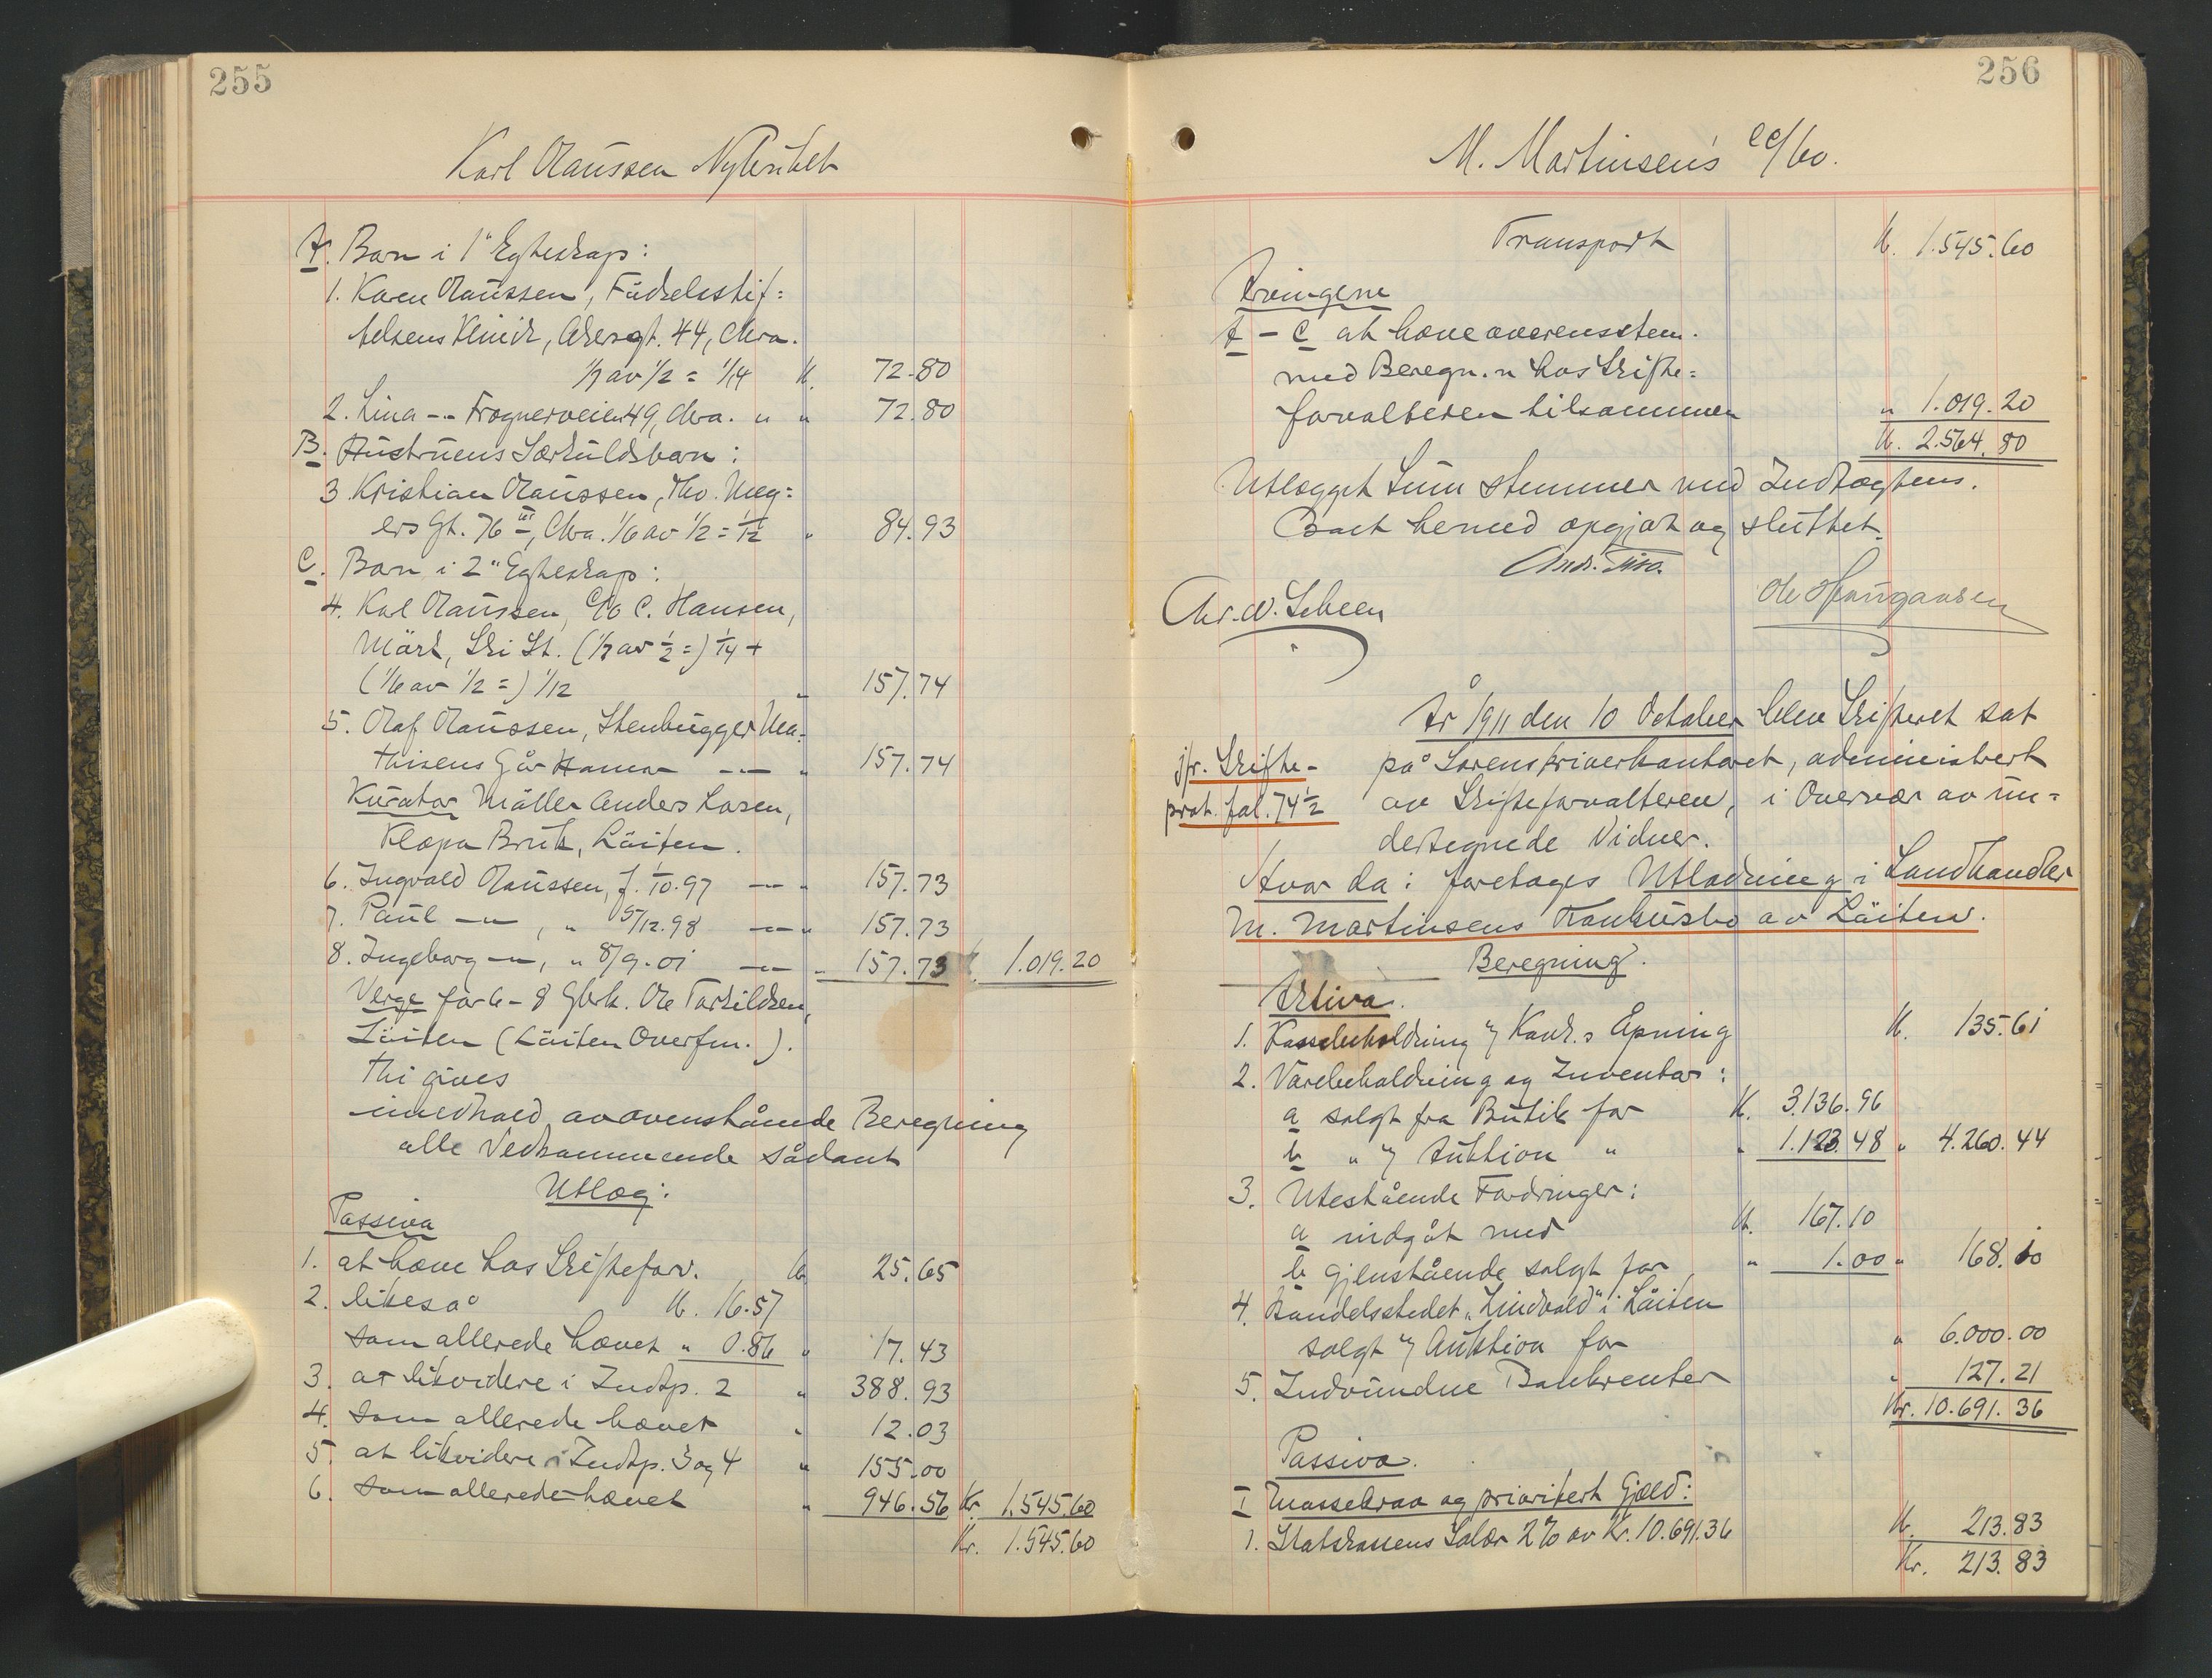 255
Karl Olaussen Nybrutet
A. Barn i 1ste Egteskap:
1. Karen Olaussen, Fødselsstif=
telsens Klinik, Akersgt. 44, Chra.
1/7 av 1/2 = 1/14 K. 72.80
2. Lina -"- Frognerveien 49, Chra. " " 72.80
B. Hustruens Særkuldsbarn:
3. Kristian Olaussen, Tho. Mey=
ers Gt. 76 III, Chra. 1/6 av 1/2 = 1/12 " 84.93
C. Barn i 2" Egteskap:
4. Karl Olaussen, c/o C. Hansen,
Mårk, Ski St. (1/7 av 1/2 =) 1/14 +
(1/6 av 1/2 =) 1/12 " 157.74
5. Olaf Olaussen, Stenhugger Ma-
thisens Går Hamar -"- " 157.74
Kurator Møller Anders Losen,
Klæpa Bruk, Løiten.
6. Ingvald Olaussen, f. 1/10.97 -"- " 157.73
7. Paul -"-, " 15/12.98 -"- " 157.73
8. Ingeborg -"-, " 8/9.01 -"- " 157.73 K. 1.019.20
Verge for 6-8 Gbrk. Ole Torkildsen,
Løiten (Løiten Overfm.).
Thi gives
i henhold av ovenstående Beregning
alle Vedkommende sådant
Utlæg:
Passiva
1. at hæve hos Skifteforv. K. 25.65
2. likeså K. 16.57
som allerede hævet " 0.86 " 17.43
3. at likvidere i Indtp. 2 " 388.93
4. som allerede hævet " 12.03
5. at likvidere i Indtp. 3 og 4 " 155.00
6. som allerede hævet " 946.56 Kr. 1.545.60
Kr. 1.545.60
256
M. Martinsens cc/bo.
Transport K. 1.545.60
Arvingerne
A - C at hæve overensstem.
med Beregn.n hos Skifte=
forvalteren tilsammen " 1.019.20
K. 2.564.80
Utlægget Sum stemmer med Indtægtens.
Boet hermed opgjort og sluttet.
Andr. Tiso.
Chr. W. Scheen
Ole Haugaasen
År 1911 den 10 October blev Skifteret sat
jfr. Skifte-
prot. fol. 74 1/2
på Sorenskriverkontoret, administrert
av Skifteforvalteren, i Overvær av un=
dertegnede Vidner.
Hvor da: foretages Utlodning i Landhandler
M. Martinsens Konkursbo av Løiten.
Beregning.
Aktiva.
1. Kassebeholdning v/ Konk.s Åpning K. 135.61
2. Varebeholdning og Inventar:
a solgt fra Butik for K. 3.136.96
b " v/ Auktion " " 1.123.48 " 4.260.44
3. Utestående Fordringer:
a indgåt med K. 167.10
b gjenstående solgt for " 1.00 " 168.10
4. Handelsstedet "Lindvold" i Løiten
solgt v/ Auktion for " 6.000.00
5. Indvundne Bankrenter " 127.21
Kr. 10.691.36
Passiva.
I Massekrav og prioritert Gjæld:
1. Statskassens Salær 2% av Kr. 10.691.36 K. 213.83
Kr. 213.83